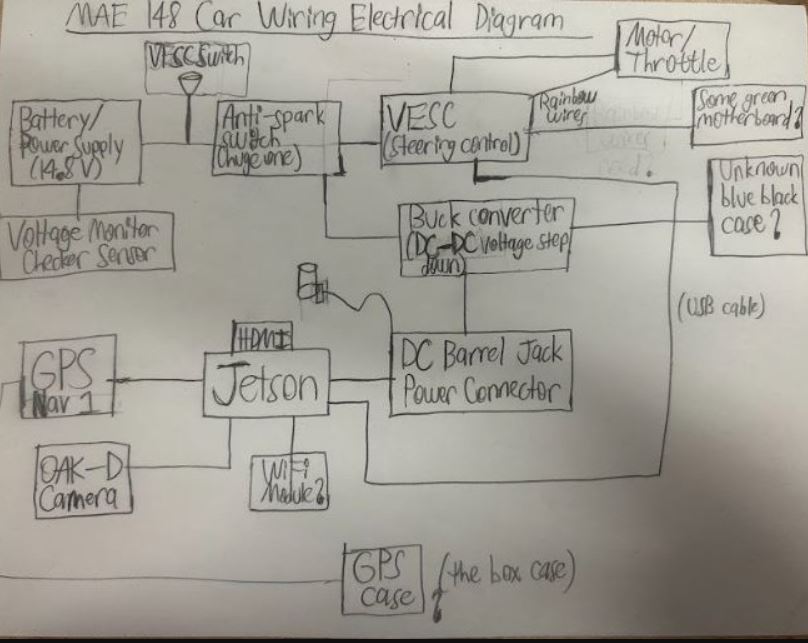 MAE 148 Car Wiring Electrical Diagram
VESC Switch
Motor/
Throttle
Battery/
Power Supply
(14.8 V)
Anti-spark
switch
(huge one)
VESC
(steering control)
Rainbow
wires
Some green
motherboard?
Unknown
blue black
case?
Voltage Monitor
Checker Sensor
Buck converter
(DC-DC Voltage step
down)
(USB cable)
HDMI
GPS
Nav 1
Jetson
DC Barrel Jack
Power Connector
OAK-D
Camera
WiFi
Module?
GPS
case
?
(the box case)